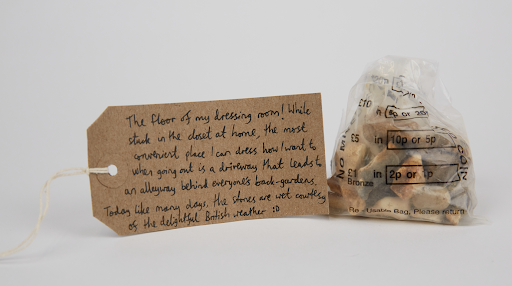 The floor of my dressing room! While
stuck in the closet at home, the most
convenient place I can dress how I want to
when going out is a driveway that leads to
an alleyway behind everyone's back-gardens.
Today like many days, the stones are wet courtesy
of the delightful British weather :D
£10 in
20p or 50p
£5 in 10p or 5p
£1 in 2p or 1p
Bronze
NO MI
COIN
Re-Usable Bag, Please return